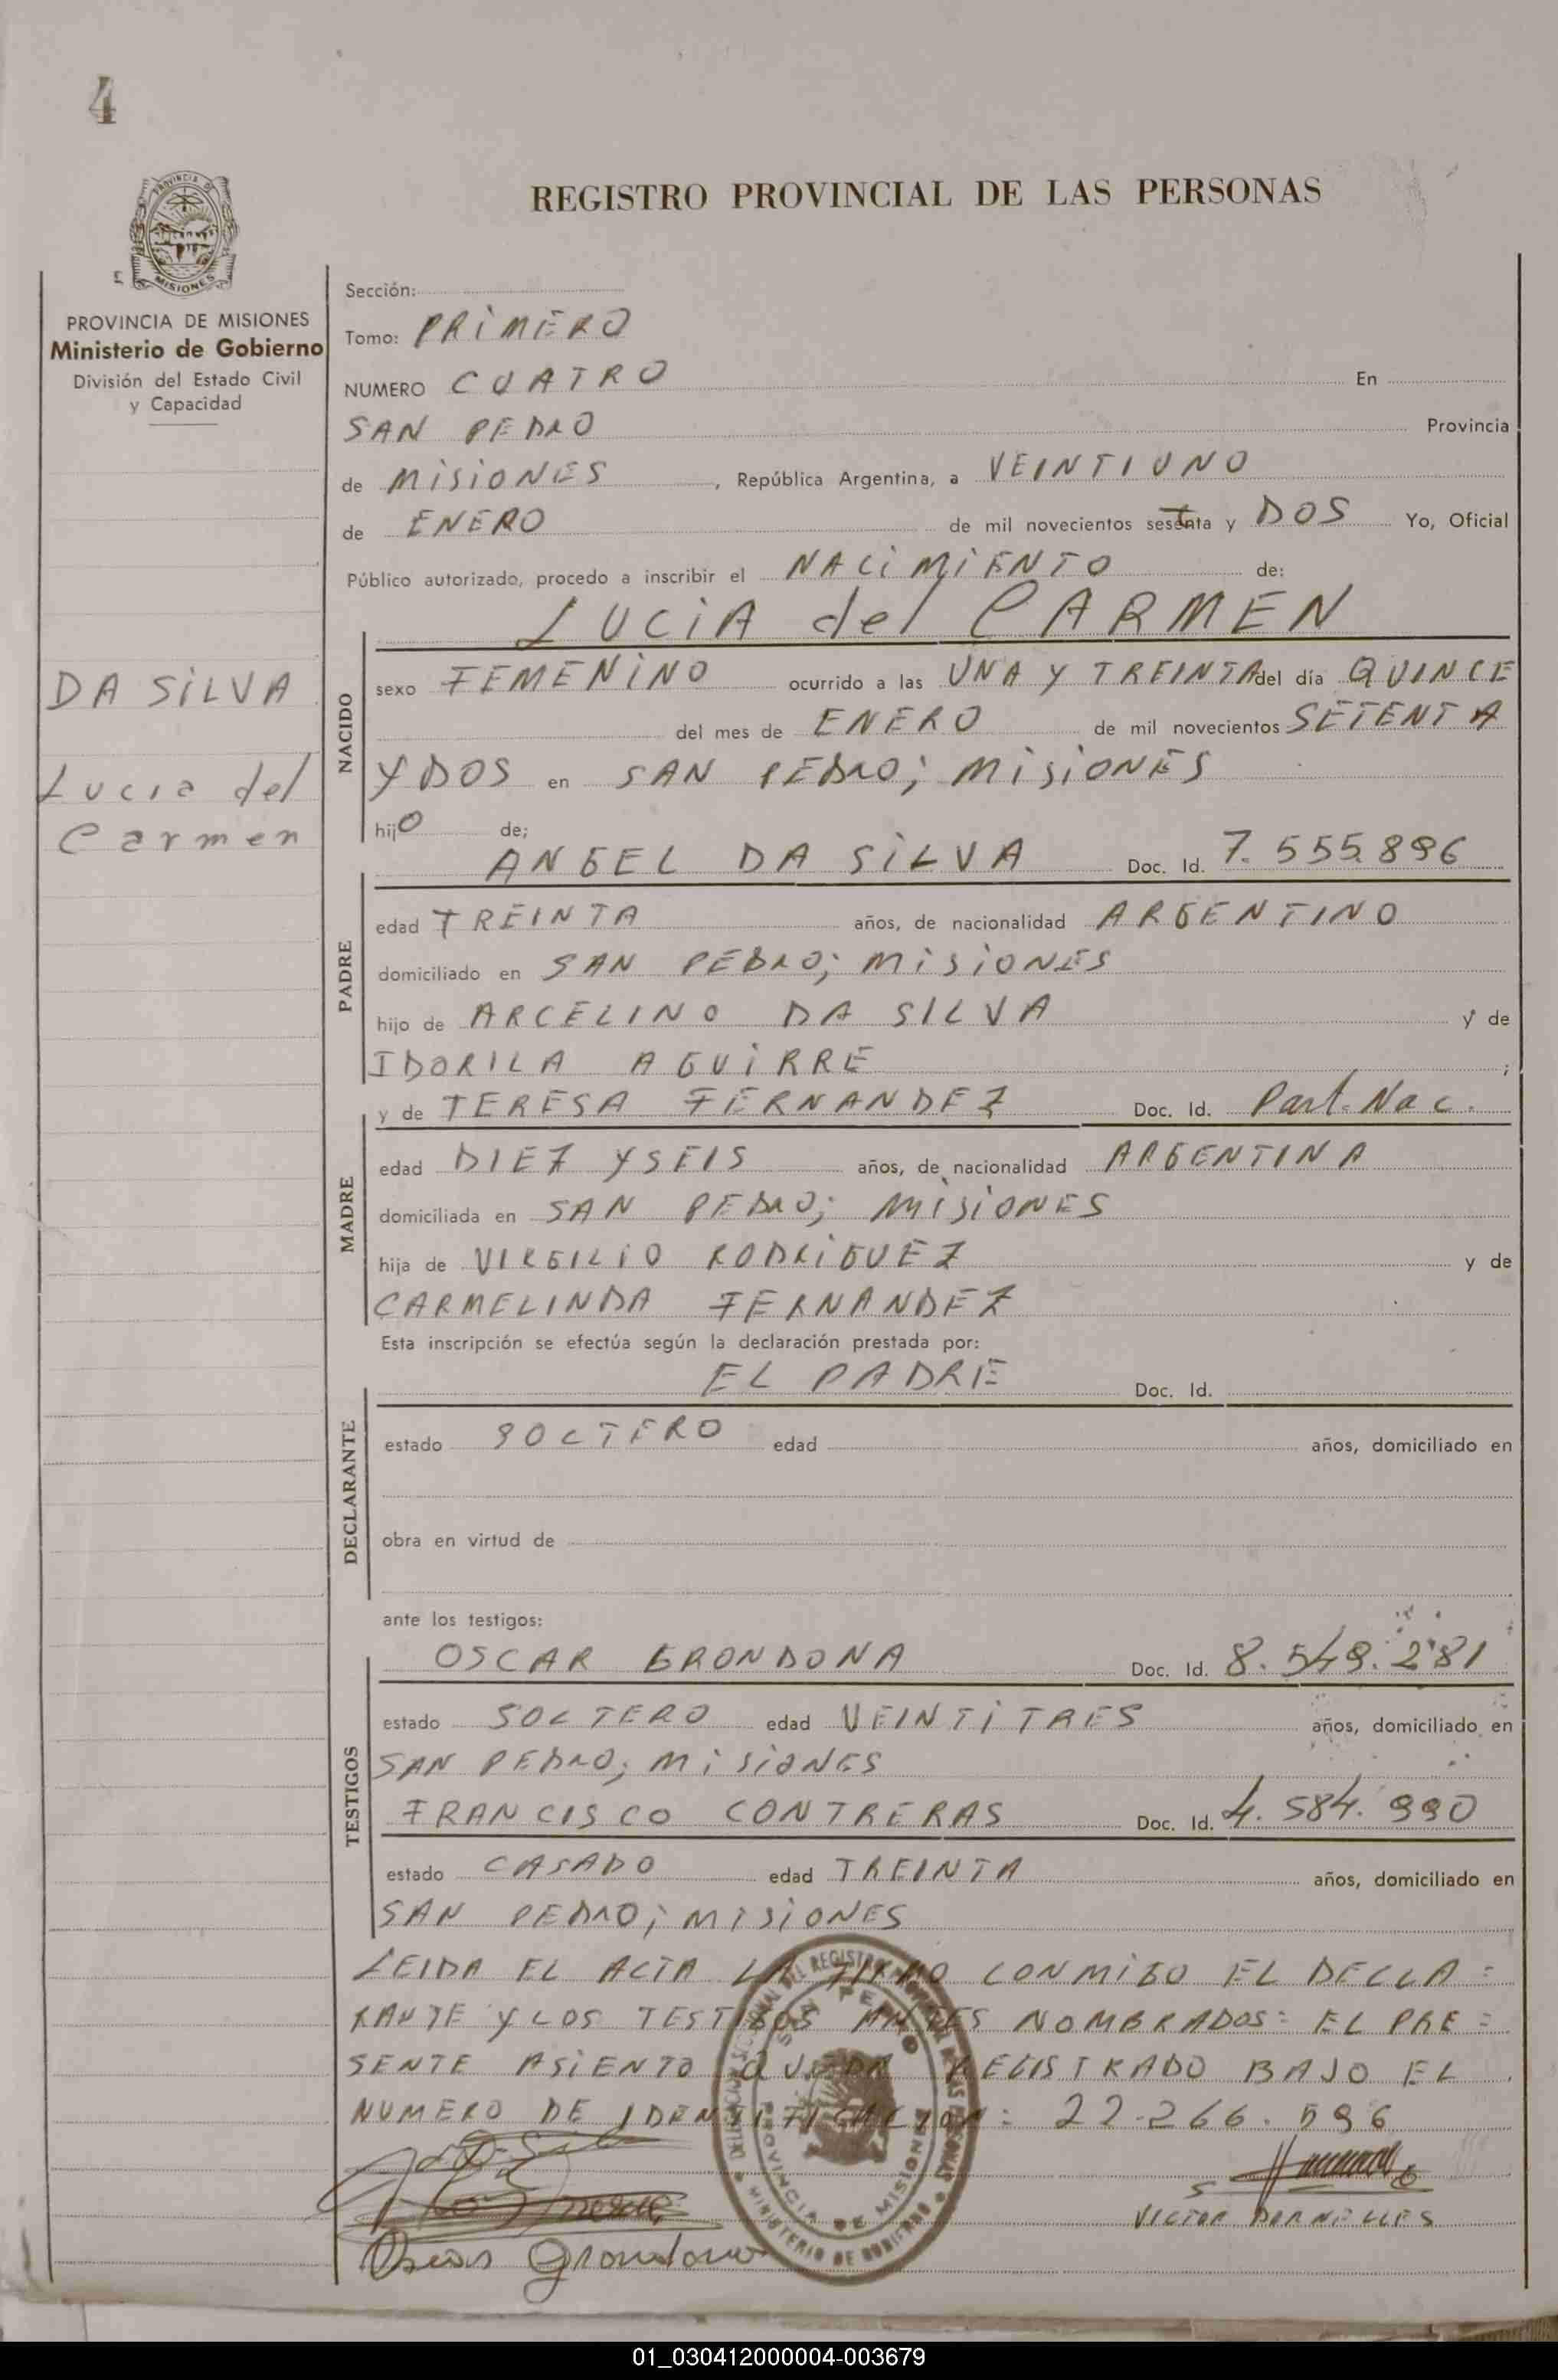 4
PROVINCIA DE
MISIONES
REGISTRO PROVINCIAL DE LAS PERSONAS
PROVINCIA DE MISIONES
Ministerio de Gobierno
División del Estado Civil
y Capacidad
DA SILVA
Lucia del
Carmen
Sección:
Tomo: PRIMERO
NUMERO CUATRO En
SAN PEDRO Provincia
de MISIONES, República Argentina, a VEINTIUNO
de ENERO de mil novecientos setenta y DOS Yo, Oficial
Público autorizado, procedo a inscribir el NACIMIENTO de:
LUCIA del CARMEN
NACIDO
sexo FEMENINO ocurrido a las UNA Y TREINTA del día QUINCE
del mes de ENERO de mil novecientos SETENTA
Y DOS en SAN PEDRO; MISIONES
hijO de;
ANGEL DA SILVA Doc. Id. 7.555.896
PADRE
edad TREINTA años, de nacionalidad ARGENTINO
domiciliado en SAN PEDRO; MISIONES
hijo de ARCELINO DA SILVA y de
IDORILA AGUIRRE ;
y de TERESA FERNANDEZ Doc. Id. Part. Nac.
MADRE
edad DIEZ Y SEIS años, de nacionalidad ARGENTINA
domiciliada en SAN PEDRO; MISIONES
hija de VIRGILIO RODRIGUEZ y de
CARMELINDA FERNANDEZ
Esta inscripción se efectúa según la declaración prestada por:
EL PADRE Doc. Id.
DECLARANTE
estado SOLTERO edad años, domiciliado en
obra en virtud de
ante los testigos:
OSCAR GRONDONA Doc. Id. 8.549.281
TESTIGOS
estado SOLTERO edad VEINTITRES años, domiciliado en
SAN PEDRO; MISIONES
FRANCISCO CONTRERAS Doc. Id. 4.584.990
estado CASADO edad TREINTA años, domiciliado en
SAN PEDRO; MISIONES
LEIDA EL ACTA LA FIRMO CONMIGO EL DECLA=
RANTE Y LOS TESTIGOS ANTES NOMBRADOS: EL PRE=
SENTE ASIENTO QUEDA REGISTRADO BAJO EL
NUMERO DE IDENTIFICACION: 22.266.596
SAN PEDRO
PROVINCIA DE MISIONES
MINISTERIO DE GOBIERNO
VICTOR DORNELLES
Oscar Grondona
01_030412000004-003679